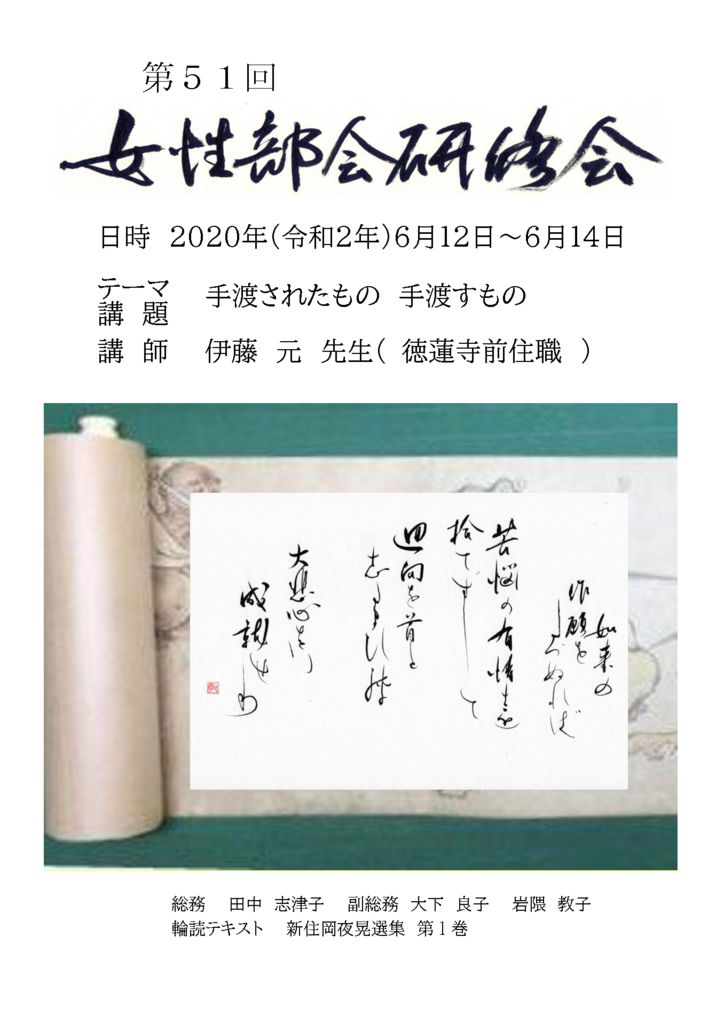 第５１回
女性部会研修会
日時　2020年(令和2年)6月12日～6月14日
テーマ
講　題　手渡されたもの　手渡すもの
講　師　伊藤　元　先生(　徳蓮寺前住職　)
如来の
作願を
たづぬれば
苦悩の有情を
捨てずして
廻向を首と
したまひて
大悲心をば
成就せり
総務　田中　志津子　副総務　大下　良子　岩隈　教子
輪読テキスト　新住岡夜晃選集　第１巻